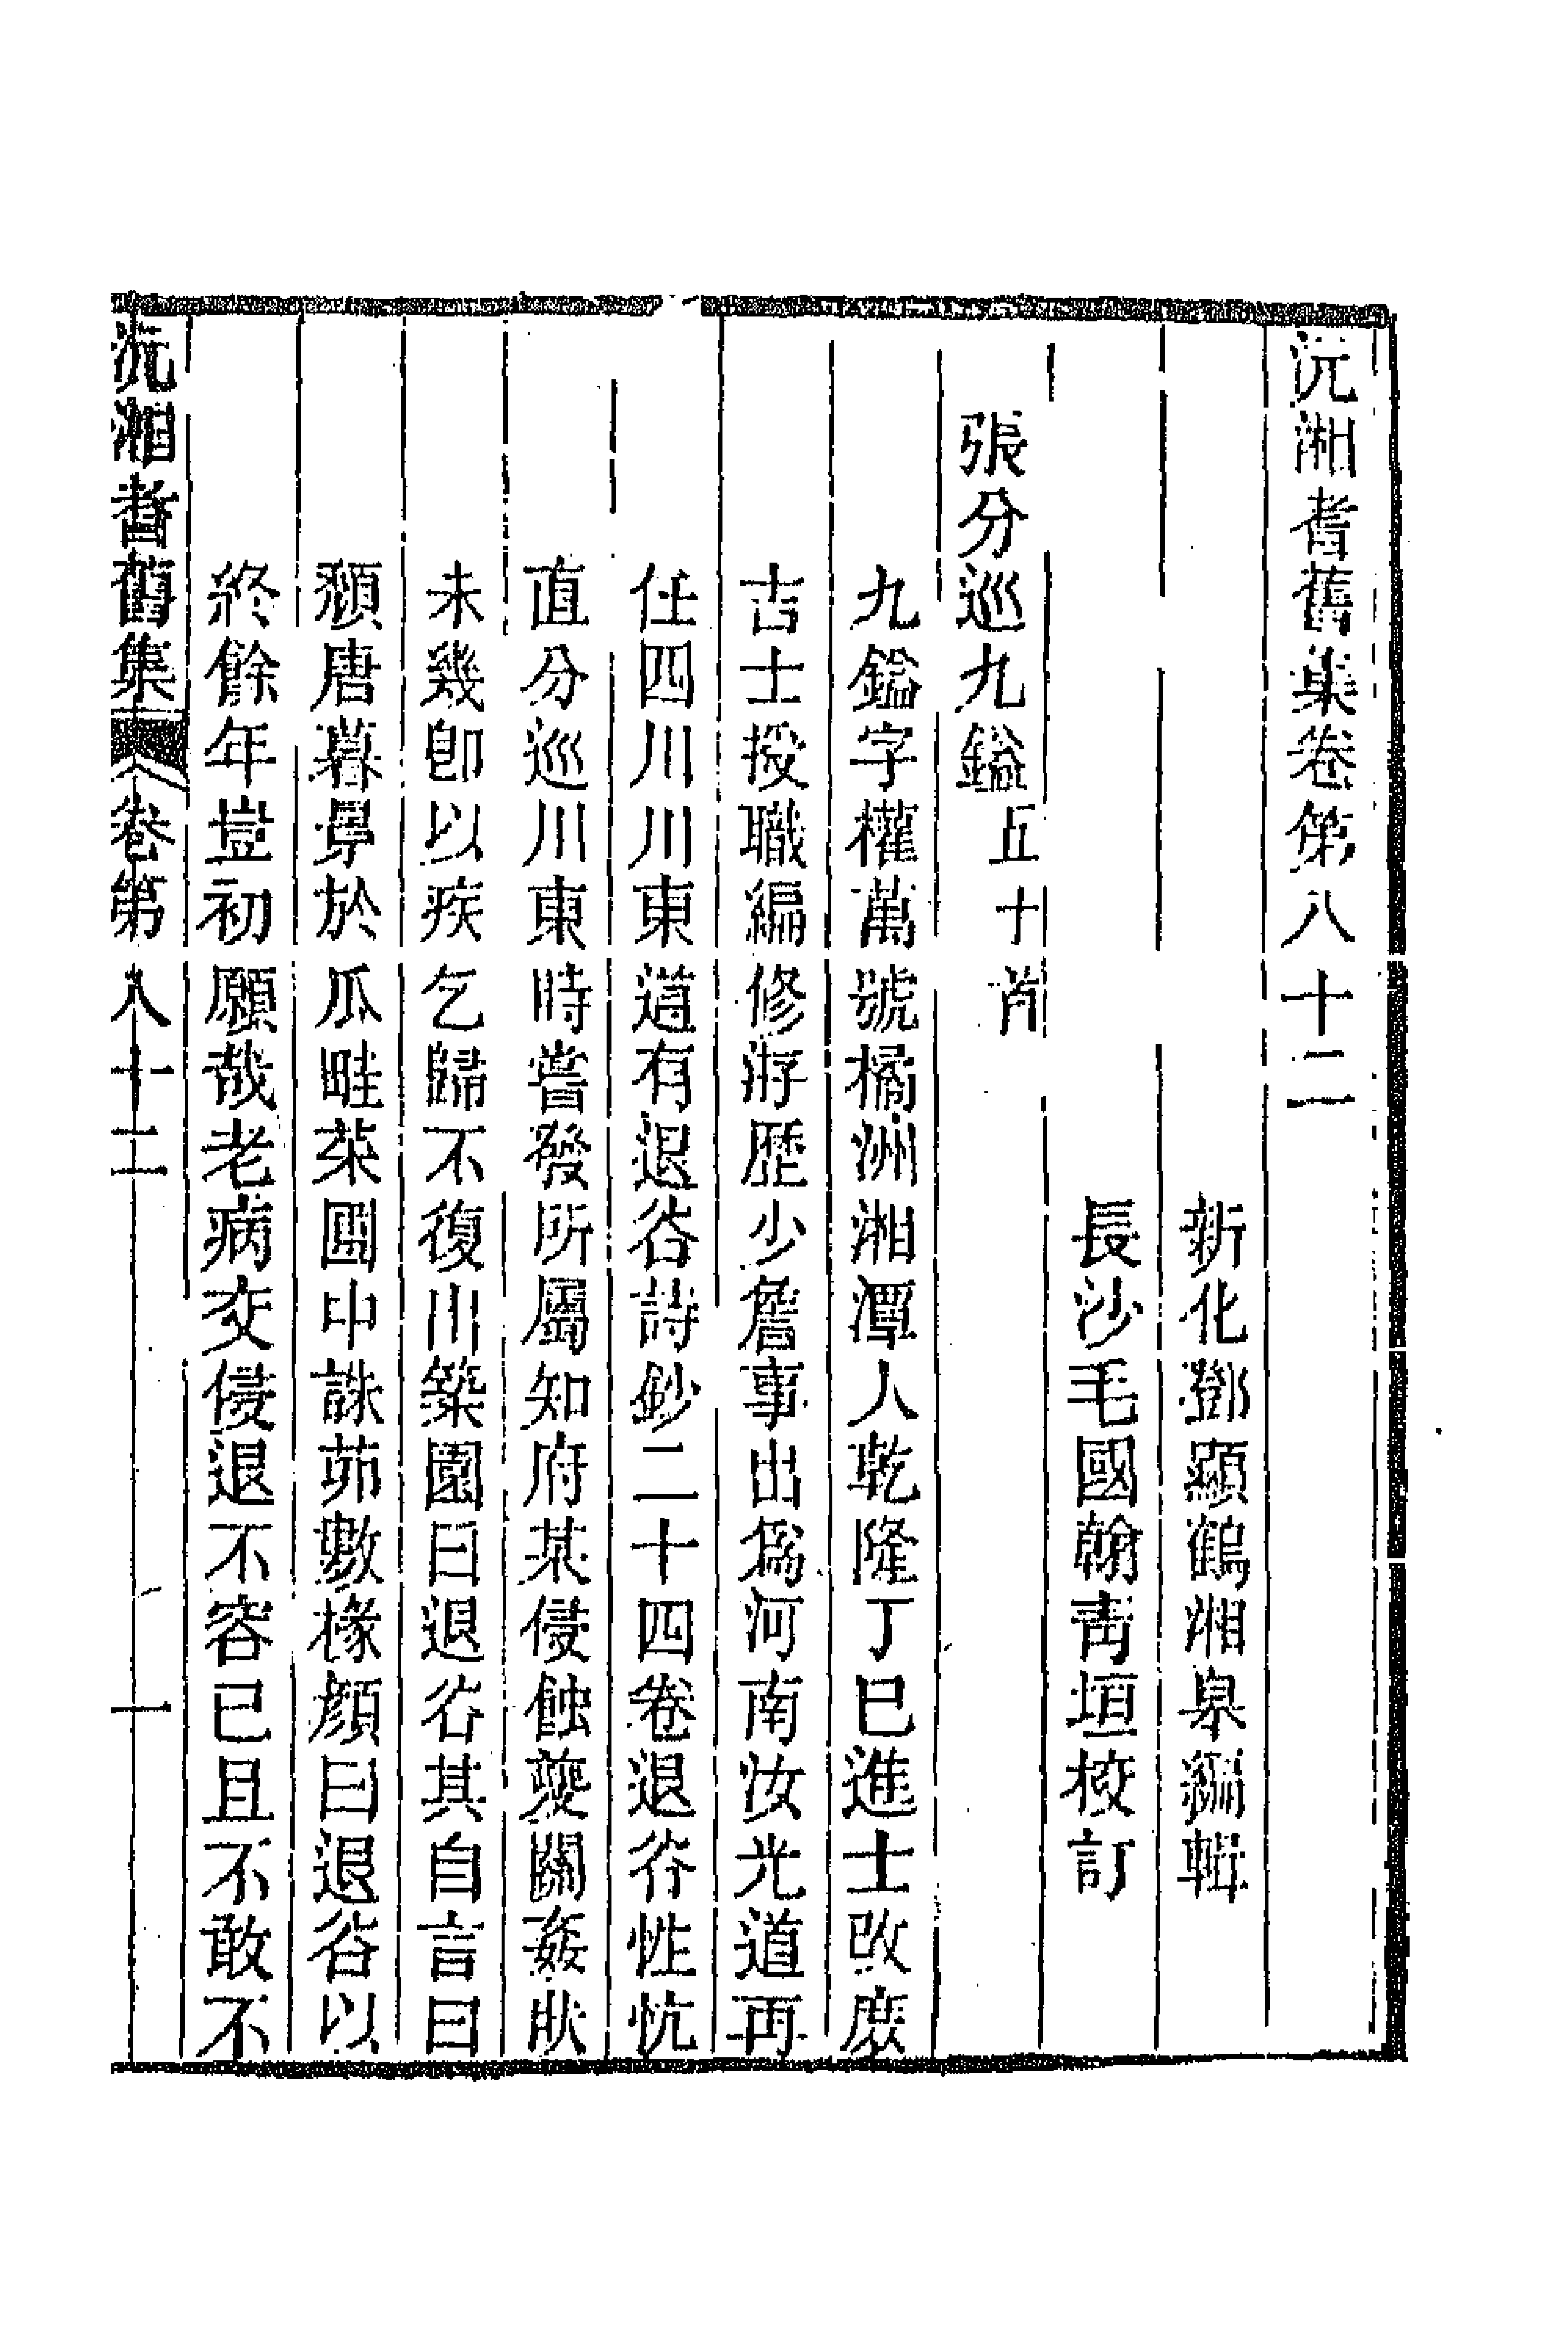 沅湘耆舊集卷第八十二
新化鄧顯鶴湘皋編輯
長沙毛國翰青垣校訂
張分巡九鎰五十首
九鎰字權萬號橘洲湘潭人乾隆丁巳進士改庶
吉士授職編修洊歷少詹事出爲河南汝光道再
任四川川東道有退谷詩鈔二十四卷退谷性忼
直分巡川東時嘗發所屬知府某侵蝕夔關姦狀
未幾卽以疾乞歸不復出築園曰退谷其自言曰
頹唐暮景於瓜畦菜圃中誅茆數椽顏曰退谷以
終餘年豈初願哉老病交侵退不容已且不敢不
沅湘耆舊集卷第八十二 一